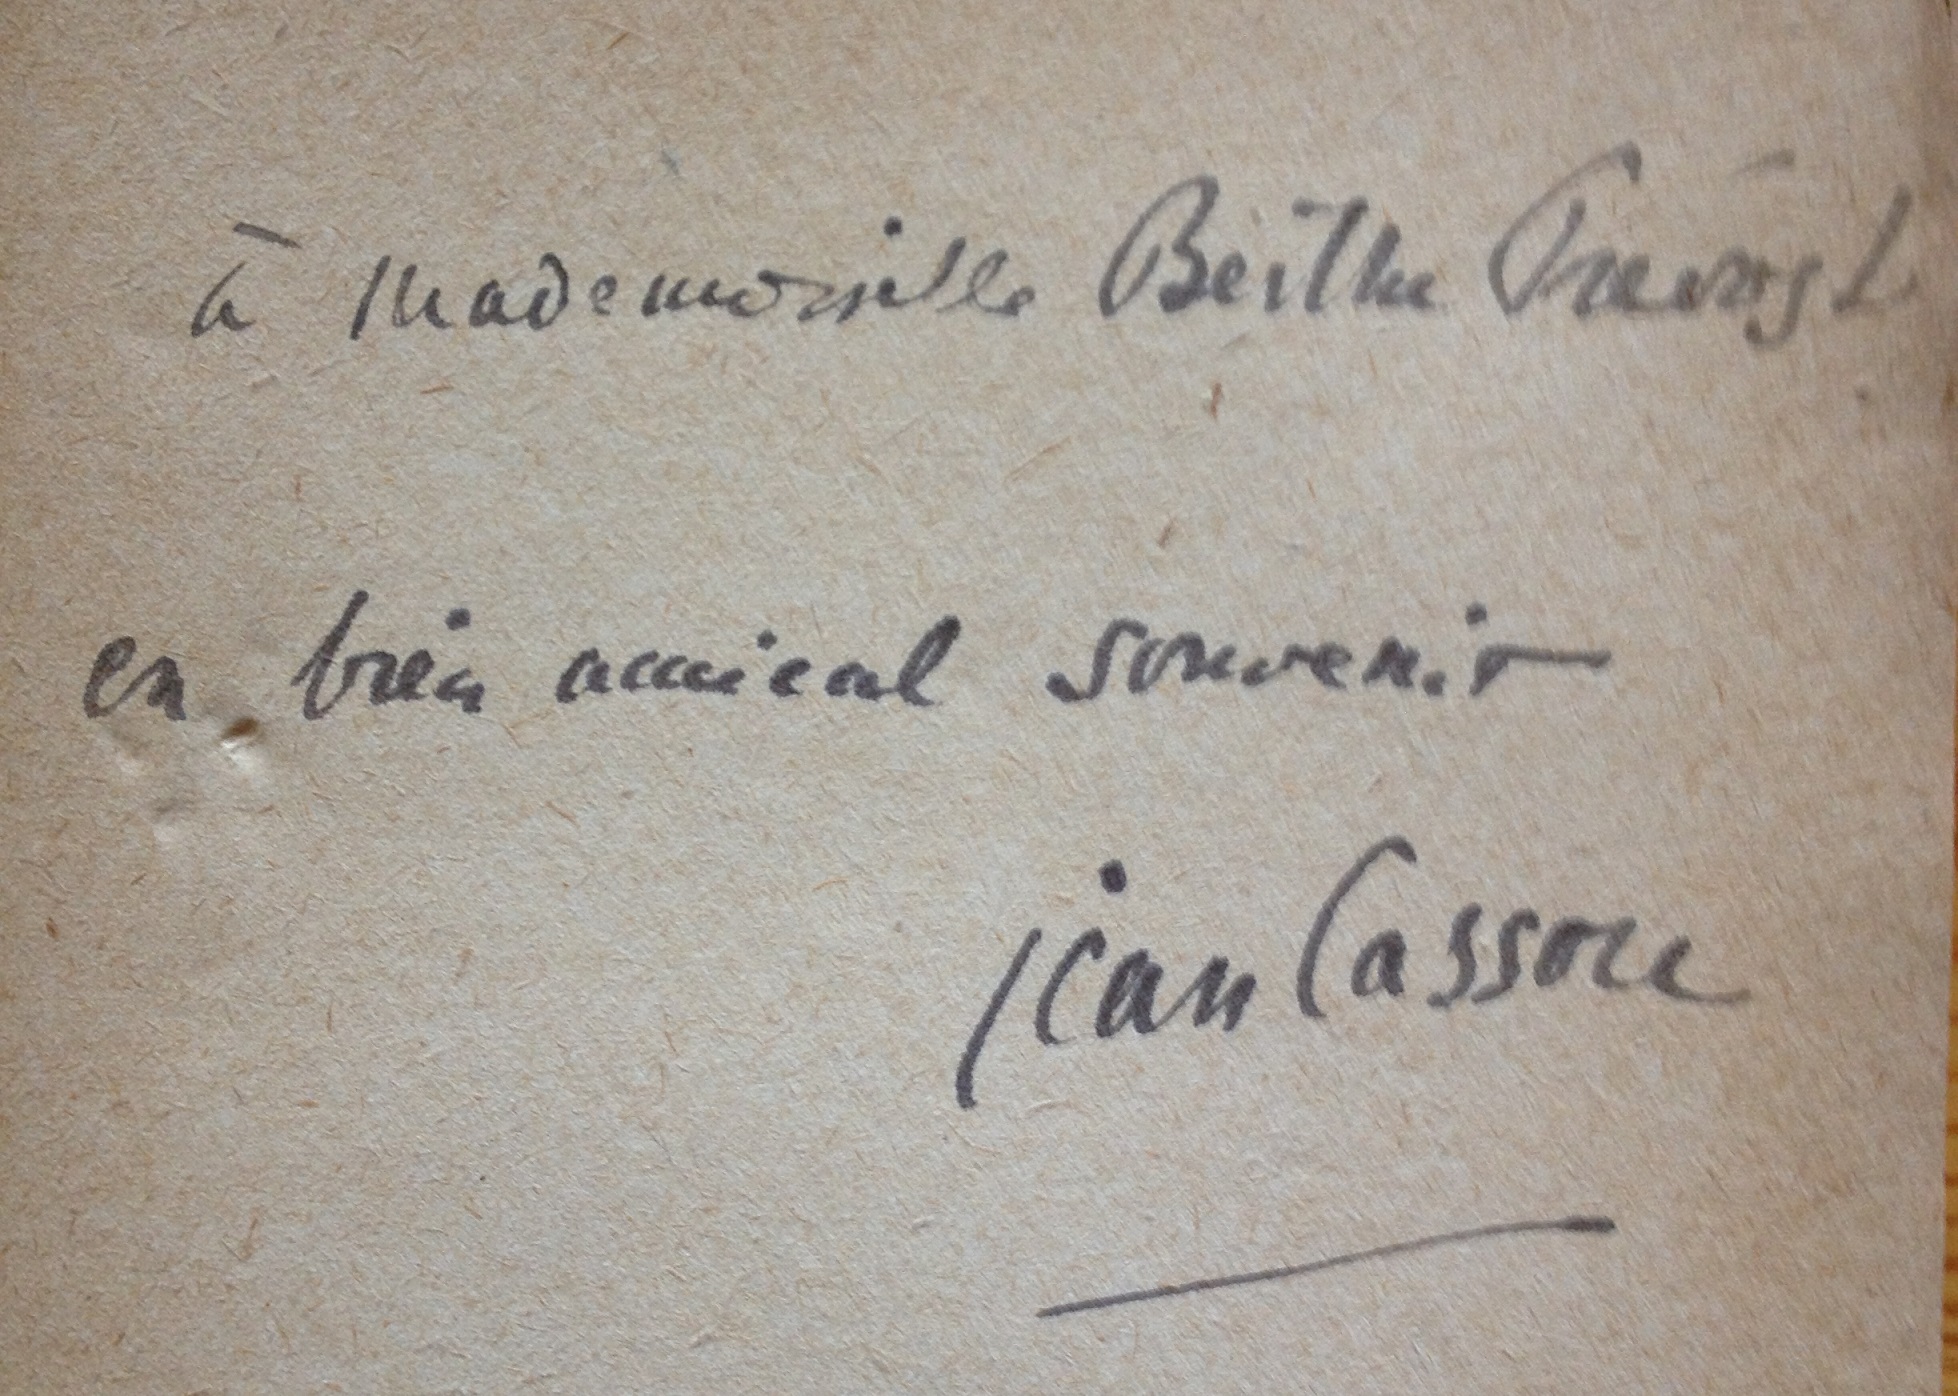 à Mademoiselle Berthe Prévost
en bien amical souvenir
jean Cassou